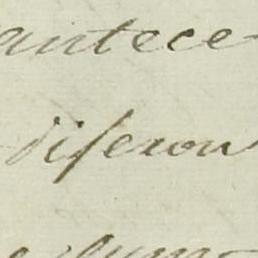 antece
diſeron